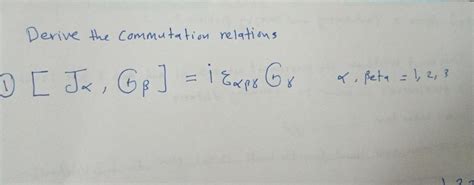 Derive the commutation relations
1) [ Jα , Gβ ] = i εαβγ Gγ α, Beta = 1, 2, 3